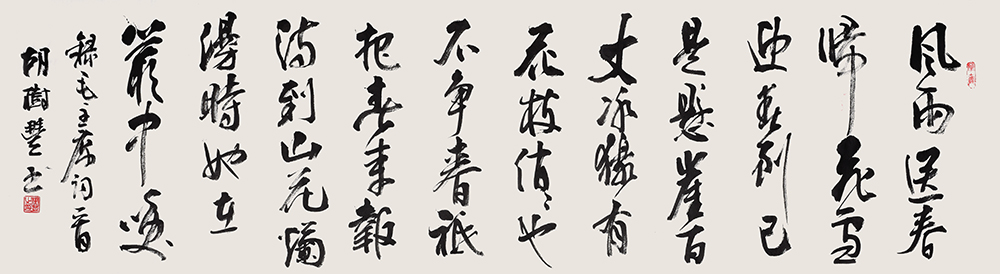 風雨送春
歸飛雪
迎春到已
是懸崖百
丈冰猶有
花枝俏〻也
不爭春祇
把春來報
待到山花爛
漫時她在
叢中笑
録毛主席詞一首
胡樹豐書